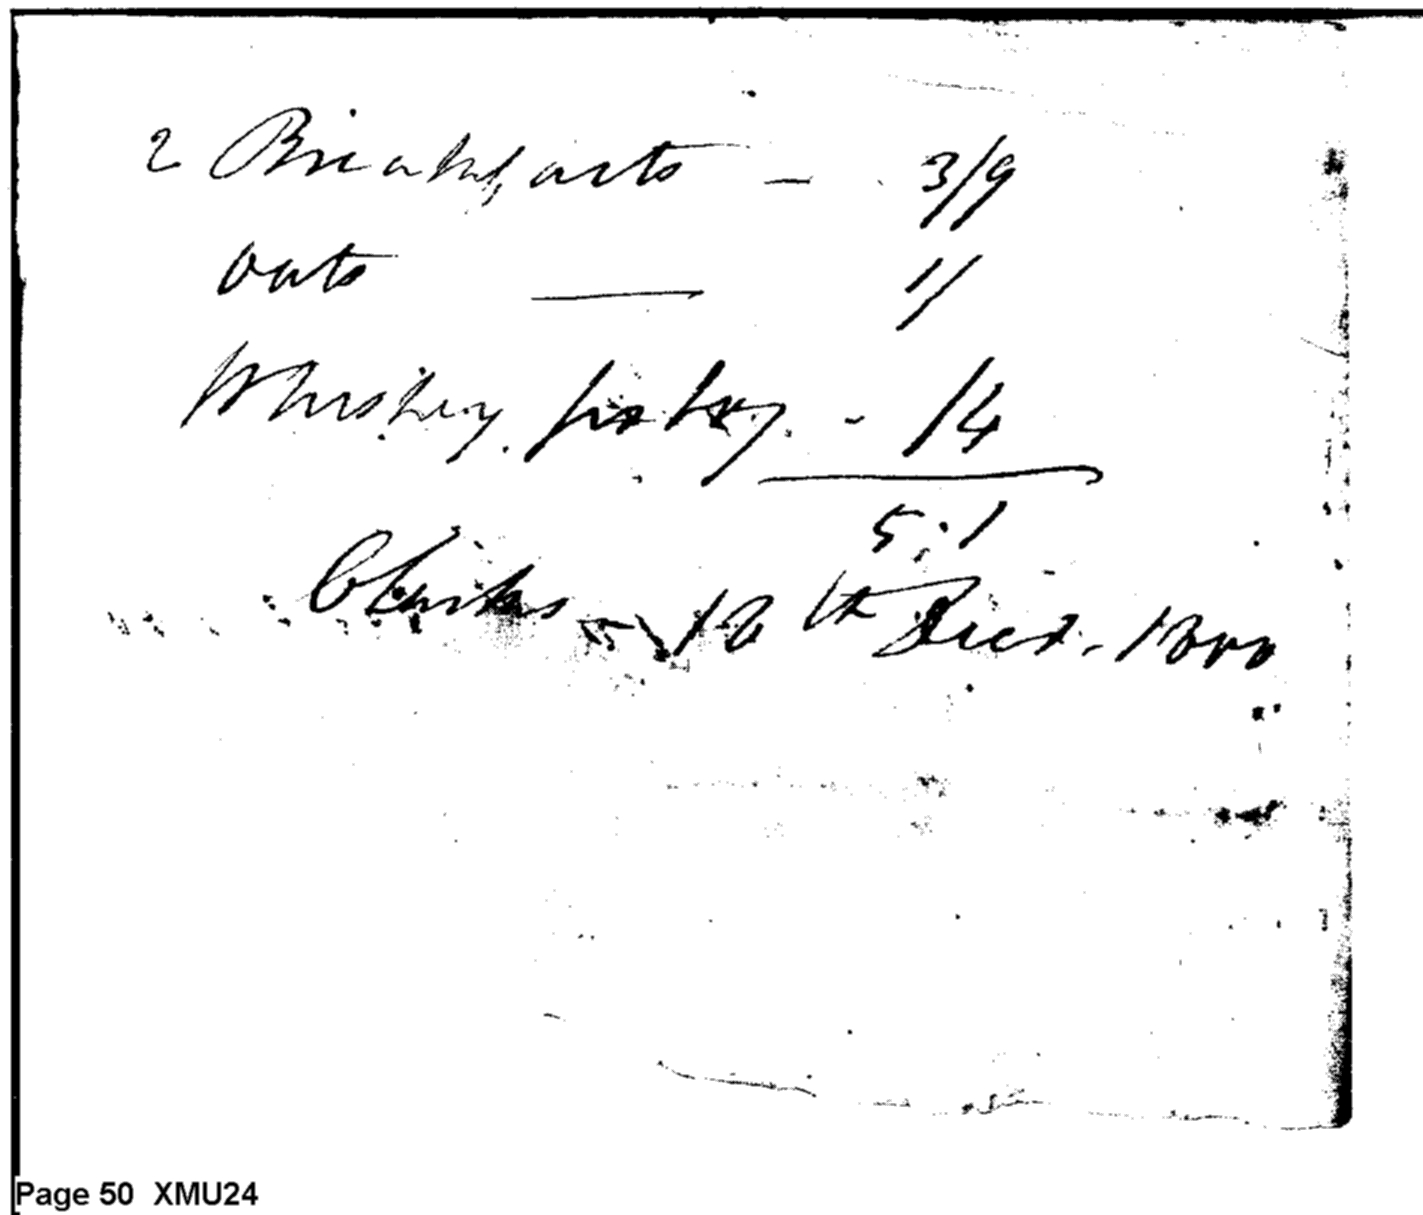 2 Breakfasts - 3/9
oats — 1/
Whiskey for boy - /4
5.1
Clarks - 12th Decr. 1800
Page 50 XMU24